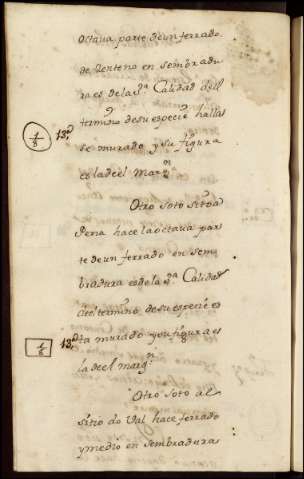 octava parte de un ferrado
de Zenteno en sembradu
ra es de la 3ª Calidad del
termino de su especie hallas
se murado y su figura
es la del margn
1/8 13ª
Otro soto sito a
Pena hace la octava par
te de un ferrado en sem
bradura es de la Calidad
del termino de su especie es
ta murado y su figura es
la del margn
1/8 13ª
Otro soto al
sitio do Val hace ferrado
y medio en sembradura